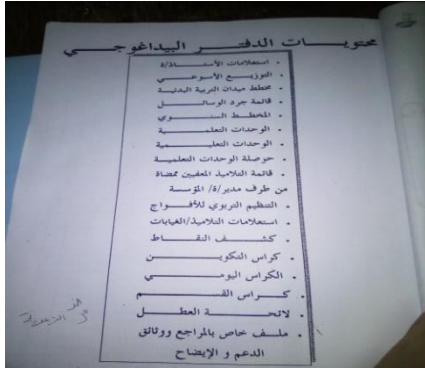 محتويات الدفتر البيداغوجي
• استعلامات الأستاذ/ة
• التوزيع الأسبوعي
• مخطط ميدان التربية البدنية
• قائمة جرد الوسائل
• المخطط السنوي
• الوحدات التعلمية
• الوحدات التعليمية
• حوصلة الوحدات التعلمية
• قائمة التلاميذ المعفيين ممضاة
من طرف مدير/ة/ المؤسسة
• التنظيم التربوي للأفواج
• استعلامات التلاميذ/الغيابات
• كشف النقاط
• كراس التكوين
• الكراس اليومي
• كراس القسم
• لائحة العطل
• ملف خاص بالمراجع ووثائق
الدعم و الإيضاح